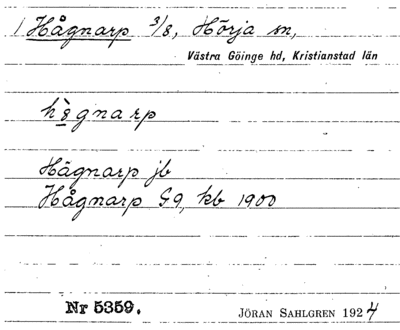 1 Hågnarp 3/8, Hörja sn,
Västra Göinge hd, Kristianstad län
Hågnarp jb
Hågnarp G9, kb 1900
Nr 5359.
JÖRAN SAHLGREN 1924